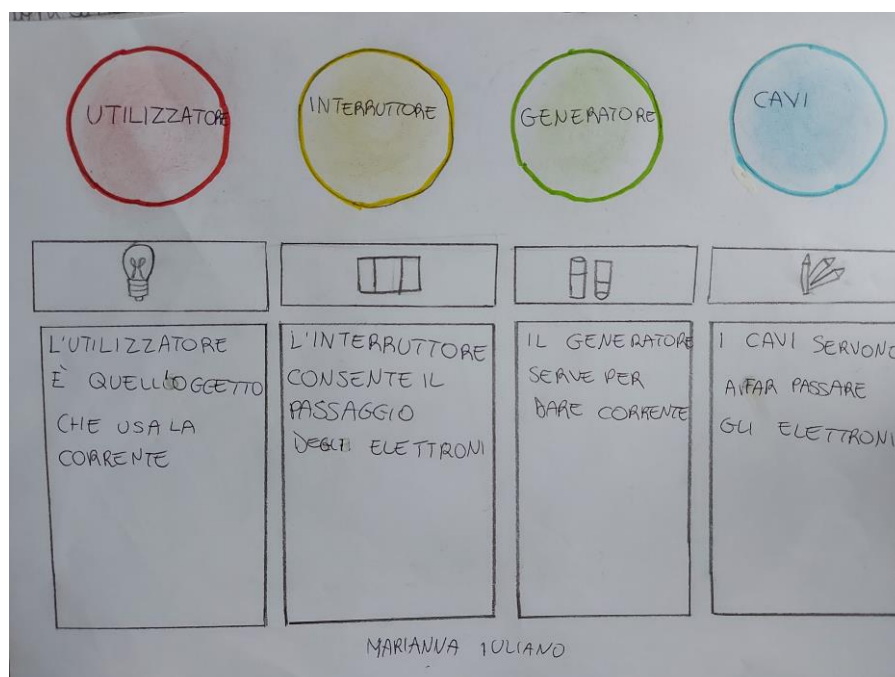 UTILIZZATORE
INTERRUTTORE
GENERATORE
CAVI
L'UTILIZZATORE
È QUELL'OGGETTO
CHE USA LA
CORRENTE
L'INTERRUTTORE
CONSENTE IL
PASSAGGIO
DEGLI ELETTRONI
IL GENERATORE
SERVE PER
DARE CORRENTE
I CAVI SERVONO
A FAR PASSARE
GLI ELETTRONI
MARIANNA IULIANO